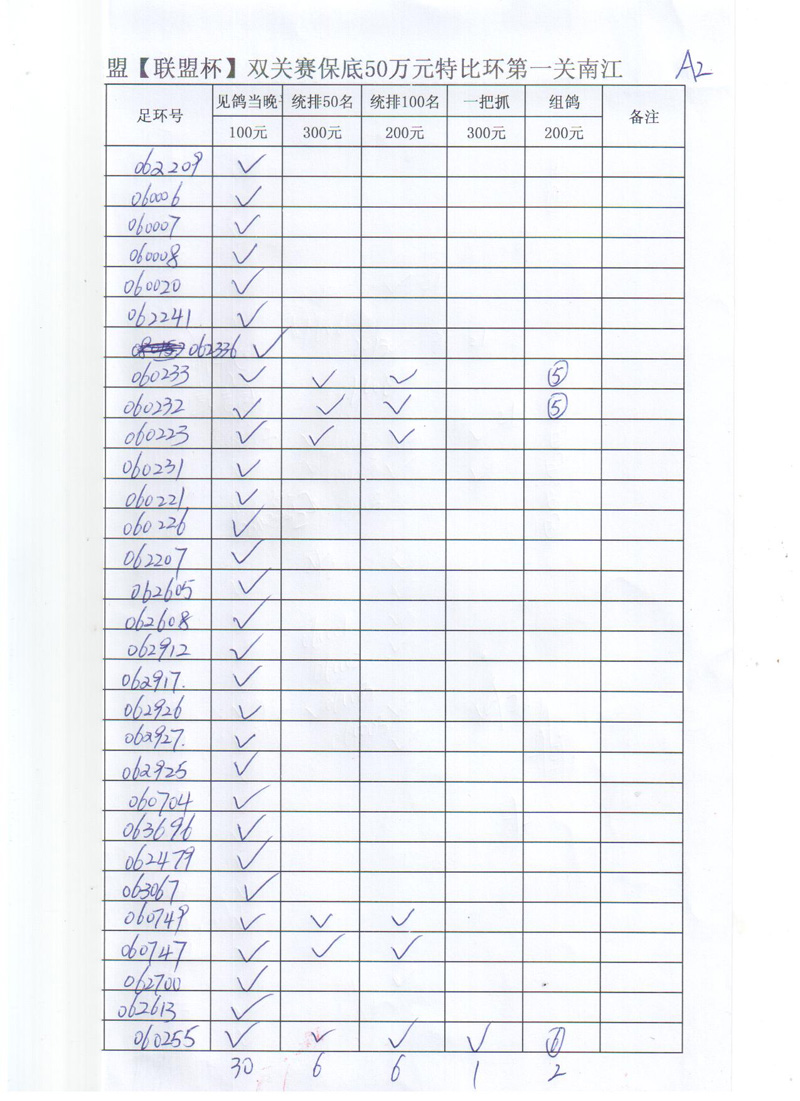 盟【联盟杯】双关赛保底50万元特比环第一关南江 A2
足环号 见鸽当晚 统排50名 统排100名 一把抓 组鸽 备注
100元 300元 200元 300元 200元
062209 ✓
060006 ✓
060007 ✓
060008 ✓
060020 ✓
062241 ✓
062336 ✓
060233 ✓ ✓ ✓ ⑤
060232 ✓ ✓ ✓ ⑤
060223 ✓ ✓ ✓
060231 ✓
060221 ✓
060226 ✓
062207 ✓
062605 ✓
062608 ✓
062912 ✓
062917. ✓
062926 ✓
062927. ✓
062925 ✓
060704 ✓
063696 ✓
062479 ✓
063067 ✓
060749 ✓ ✓ ✓
060747 ✓ ✓ ✓
062700 ✓
062613 ✓
060255 ✓ ✓ ✓ ✓
30 6 6 1 2